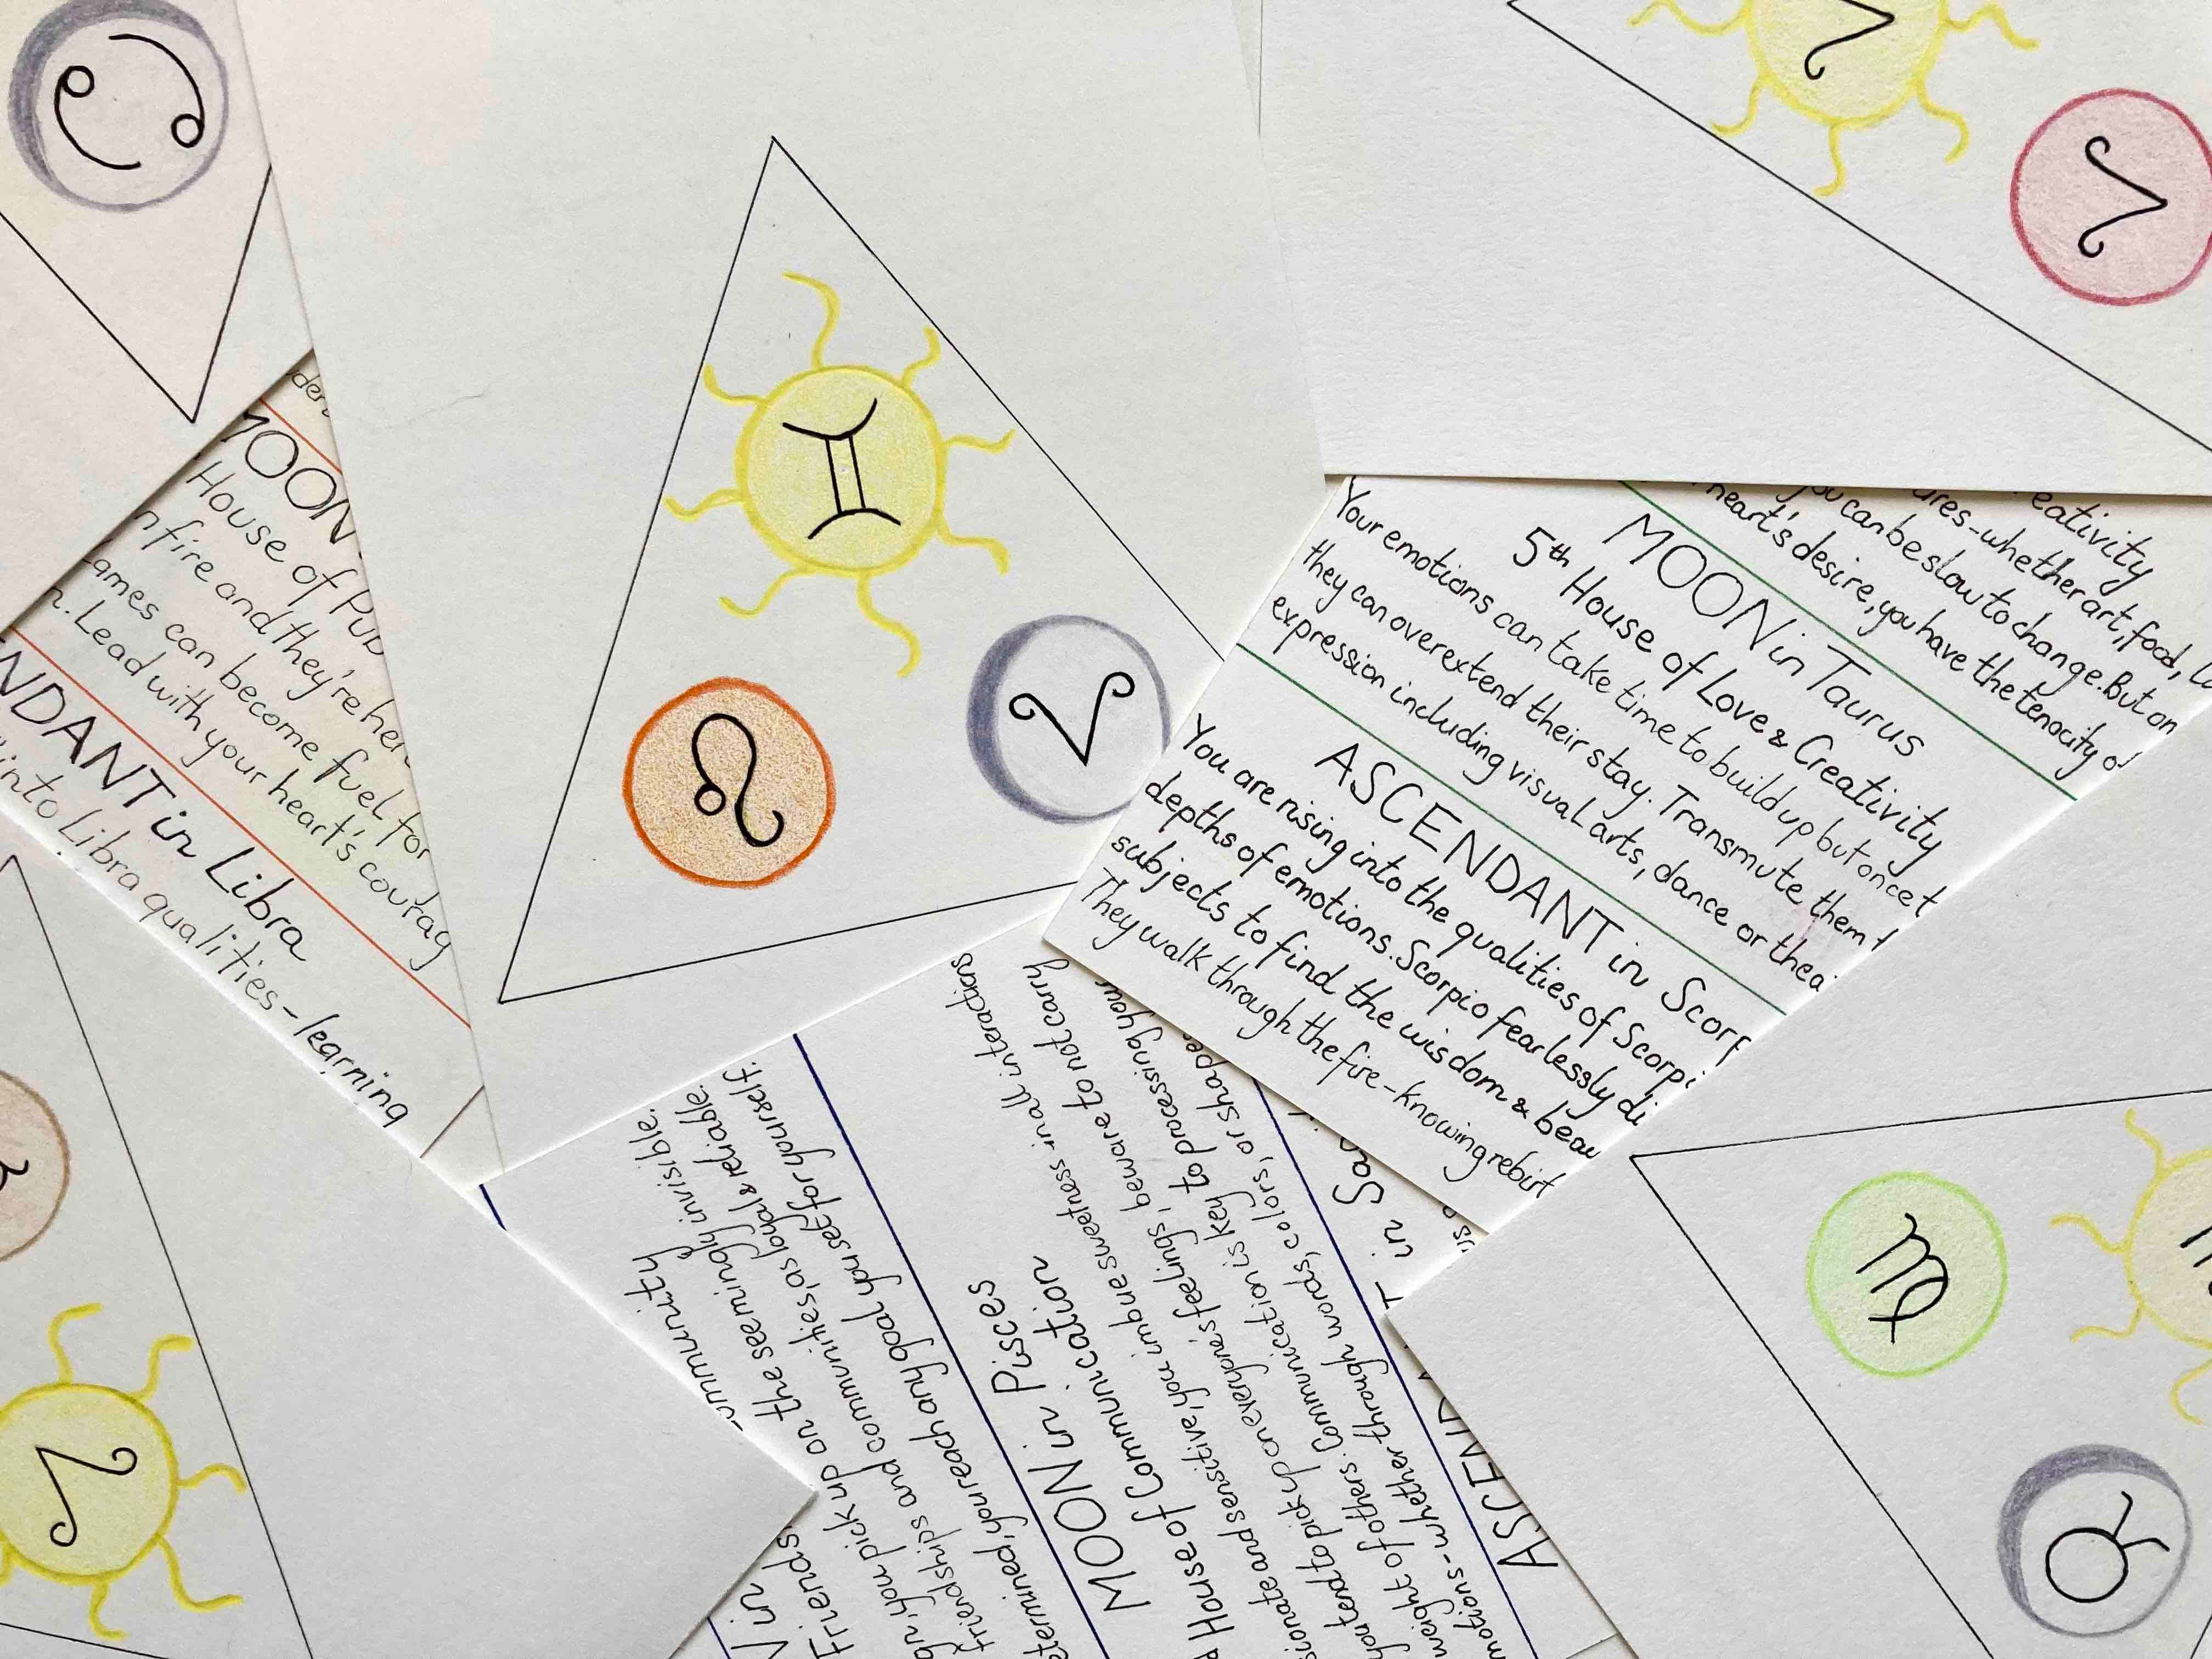 MOON
House of Pub
fire and they're her
can become fuel for
Lead with your heart's courag
ENDANT in Libra
into Libra qualities-learning
eativity
ures-whether art, food,
you can be slow to change. But on
heart's desire, you have the tenacity of
MOON in Taurus
5th House of Love & Creativity
Your emotions can take time to build up but once t
they can overextend their stay. Transmute them
expression including visual arts, dance or thea
ASCENDANT in Scorp
You are rising into the qualities of Scorpi
depths of emotions. Scorpio fearlessly di
subjects to find the wisdom & beau
They walk through the fire-knowing rebirt
in
Friends
ommunity
you pick up on the seemingly invisible.
friendships and communities, as loyal & reliable.
etermined, you reach any goal you set for yourself.
MOON in Pisces
House of Communication
sionate and sensitive, you imbue sweetness in all interactions
you tend to pick up on everyone's feelings, beware to not carry
weight of others. Communication is key to processing your
motions-whether through words, colors, or shapes
ASCEND
in Sag